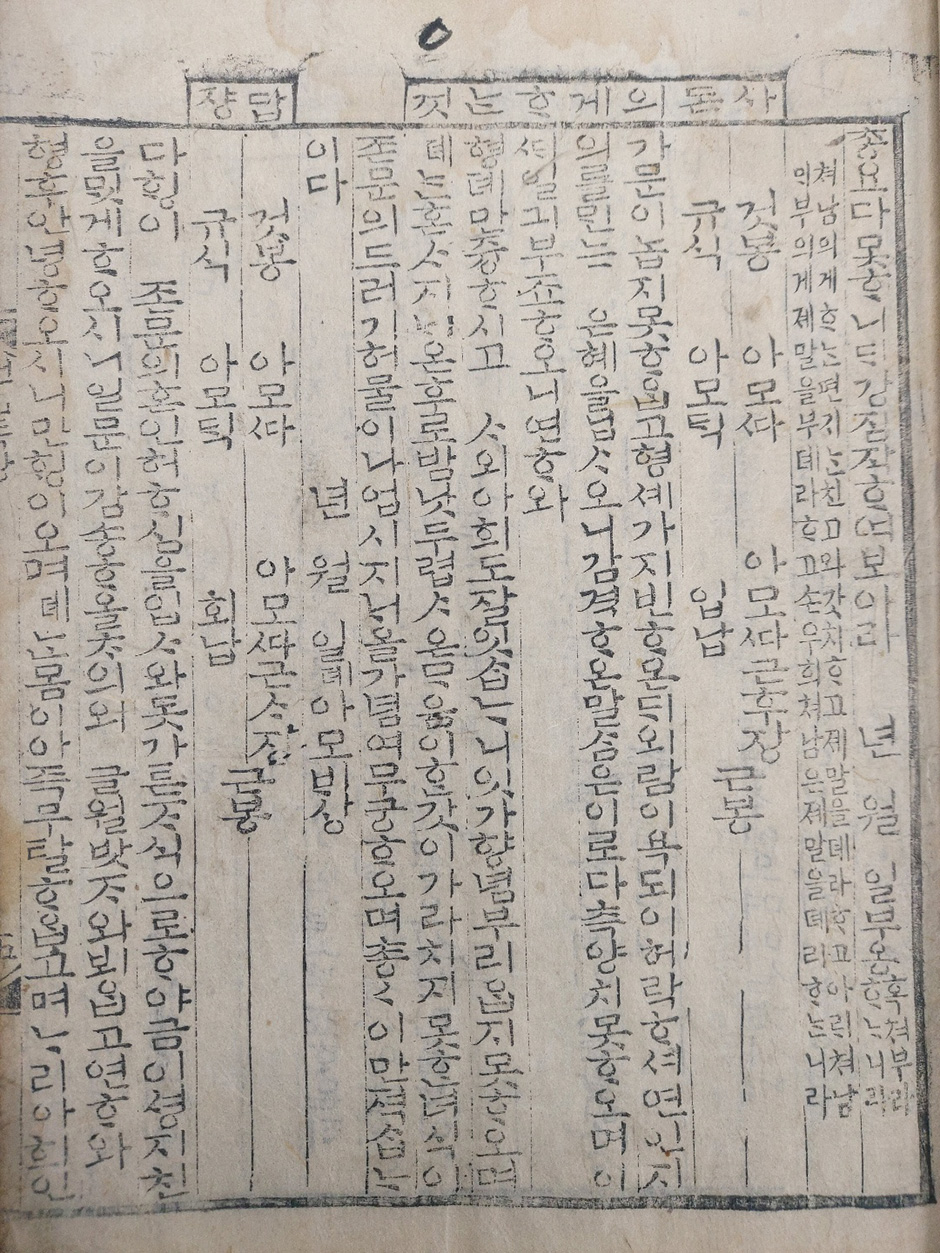 사돈의게ᄒᆞᄂᆞᆫ것
답쟝
총요 다 못ᄒᆞ니 ᄃᆡ강 짐쟉ᄒᆞ여 보아라 년 월 일 부 혹 쳐부라 ᄒᆞᄂᆞ니라
쳐남의게 ᄒᆞᄂᆞᆫ 편지ᄂᆞᆫ 친고와 갓치 ᄒᆞ고 제 말을 데라 ᄒᆞ고 아ᄅᆡ 쳐남
의 부의게 제 말을 부데라 ᄒᆞ고 손우희 쳐남은 제 말을 데라 ᄒᆞᄂᆞ니라
것봉 아모ᄯᅡ 아모ᄯᅡ 근후장 근봉
규식 아모ᄃᆡᆨ 입납
가문이 놉지 못ᄒᆞ옵고 형셰 가지빈ᄒᆞ온ᄃᆡ 외람이 ᄇᆞᆨ되이 허락ᄒᆞ셔 연인지
의ᄅᆞᆯ ᄆᆡᆺᄂᆞᆫ 은혜을 닙ᄉᆞ오니 감격ᄒᆞ온 말ᄉᆞᆷ은 이로 다 측양치 못ᄒᆞ오며 이
ᄯᅢ 일긔 부죠ᄒᆞ오니 연ᄒᆞ와
형톄 만즁ᄒᆞ시고 ᄉᆞ외아희도 잘 잇ᄉᆞᆸᄂᆞ니잇가 향념 부리옵지 못ᄒᆞ오며
데ᄂᆞᆫ 혼ᄉᆞ 지ᄂᆡ온 후로 밤낫 두렵ᄉᆞ옴은 ᄋᆞᄒᆡ 갓이 가라치지 못ᄒᆞᆫ 녀식이
존문의 드러가 허물이나 업시 지ᄂᆡ올가 념녀 무궁ᄒᆞ오며 총총 이만 젹ᄉᆞᆸᄂᆞ
이다 년 월 일 데 아모 ᄇᆡ상
것봉 아모ᄯᅡ 아모ᄯᅡ 근ᄉᆞ장 근봉
규식 아모ᄃᆡᆨ 회답
다ᄒᆡᆼ이 존문의 혼인 허ᄒᆞ심을 입ᄉᆞ와 돗 가ᄐᆞᆫ ᄌᆞ식으로 ᄒᆞ야금 이셩지친
을 ᄆᆡᆺ게 ᄒᆞ오시니 일문이 감츅ᄒᆞ올 ᄎᆞ의 외 글월 밧ᄌᆞ와 뵈옵고 연ᄒᆞ와
형후 안녕ᄒᆞ오시니 만ᄒᆡᆼ이오며 뎨ᄂᆞᆫ 몸이 아즉 무탈ᄒᆞ옵고 며ᄂᆞ리 아희인